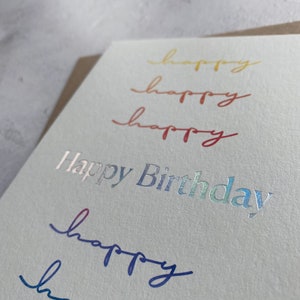 happy
happy
happy
Happy Birthday
happy